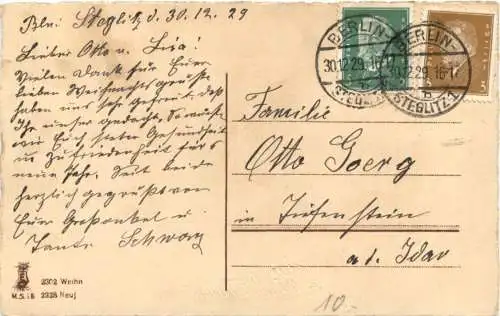 Bln. Steglitz d. 30.12.29
Lieber Otto u. Lisa!
Vielen Dank für Eure
lieben Weihnachtsgrüße
haben uns sehr gefreut, daß
Ihr unser gedacht, wünschen
wir Euch steten Gesundheit
u. Zufriedenheit fürs
neue Jahr. Seid beide
herzlich gegrüßt von
Euer Großonkel u.
Tante Schwarz
2302 Weihn
M.S.i.B 2328 Neuj
BERLIN-
30.12.29. 16-17
BERLIN-
30.12.29. 16-17
STEGLITZ 1
3
Familie
Otto Goerg
in Tiefenstein
a.d. Idar
10.-